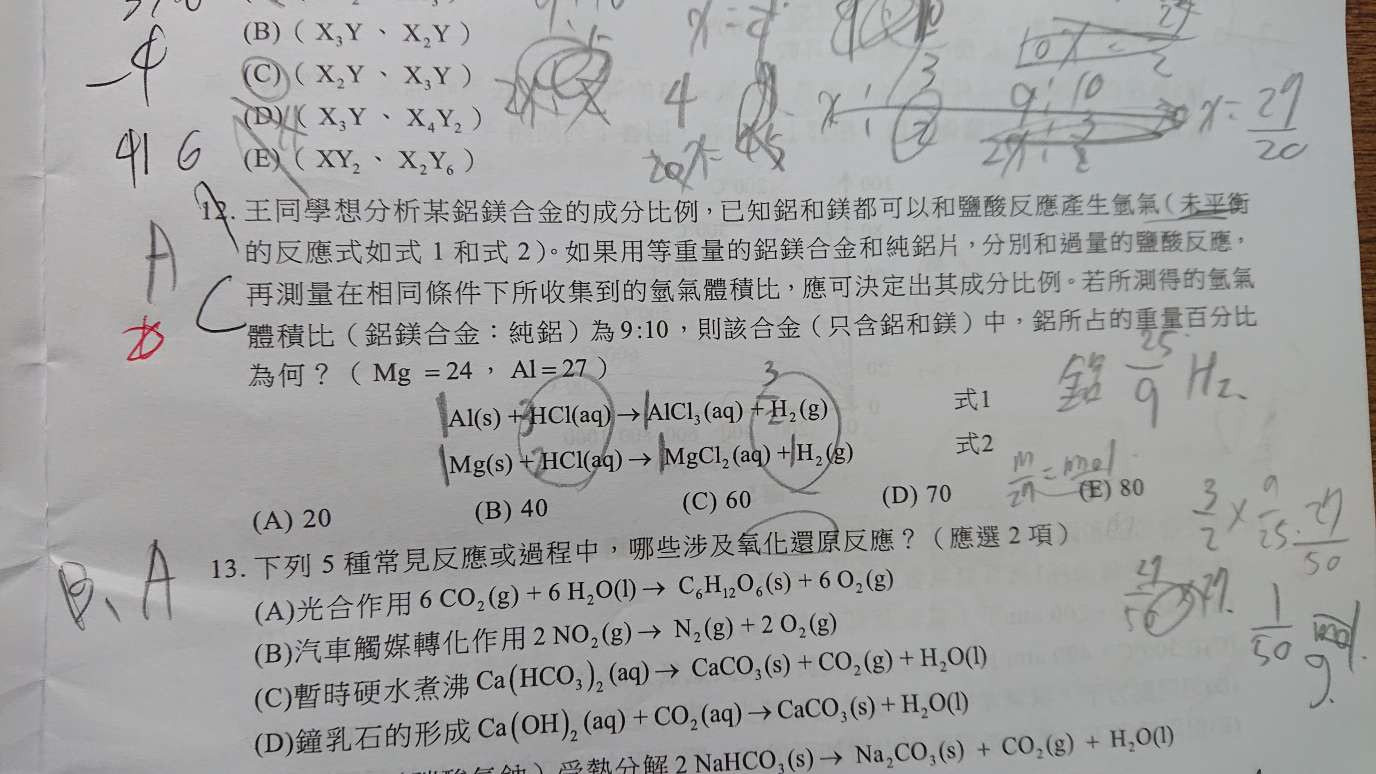 (B) ( X₃Y 、 X₂Y )
(C) ( X₂Y 、 X₃Y )
(D) ( X₃Y 、 X₄Y₂ )
(E) ( XY₂ 、 X₂Y₆ )
4
416
x=
4
x : 3
9:10
x= 27/20
20x=45
12. 王同學想分析某鋁鎂合金的成分比例，已知鋁和鎂都可以和鹽酸反應產生氫氣（未平衡
的反應式如式 1 和式 2）。如果用等重量的鋁鎂合金和純鋁片，分別和過量的鹽酸反應，
再測量在相同條件下所收集到的氫氣體積比，應可決定出其成分比例。若所測得的氫氣
體積比（鋁鎂合金：純鋁）為 9:10，則該合金（只含鋁和鎂）中，鋁所占的重量百分比
為何？（ Mg = 24 ， Al = 27 ）
A
C
鋁 25/9 H₂
1Al(s) + 3HCl(aq) → 1AlCl₃(aq) + 3/2 H₂(g) 式1
1Mg(s) + 2HCl(aq) → 1MgCl₂(aq) + 1H₂(g) 式2
m/27 = mol
(A) 20 (B) 40 (C) 60 (D) 70 (E) 80
3/2 × 9/25 . 27/50
1/50 mol
g.
B、A
13. 下列 5 種常見反應或過程中，哪些涉及氧化還原反應？（應選 2 項）
(A)光合作用 6 CO₂(g) + 6 H₂O(l) → C₆H₁₂O₆(s) + 6 O₂(g)
(B)汽車觸媒轉化作用 2 NO₂(g) → N₂(g) + 2 O₂(g)
(C)暫時硬水煮沸 Ca(HCO₃)₂(aq) → CaCO₃(s) + CO₂(g) + H₂O(l)
(D)鐘乳石的形成 Ca(OH)₂(aq) + CO₂(aq) → CaCO₃(s) + H₂O(l)
受熱分解 2 NaHCO₃(s) → Na₂CO₃(s) + CO₂(g) + H₂O(l)